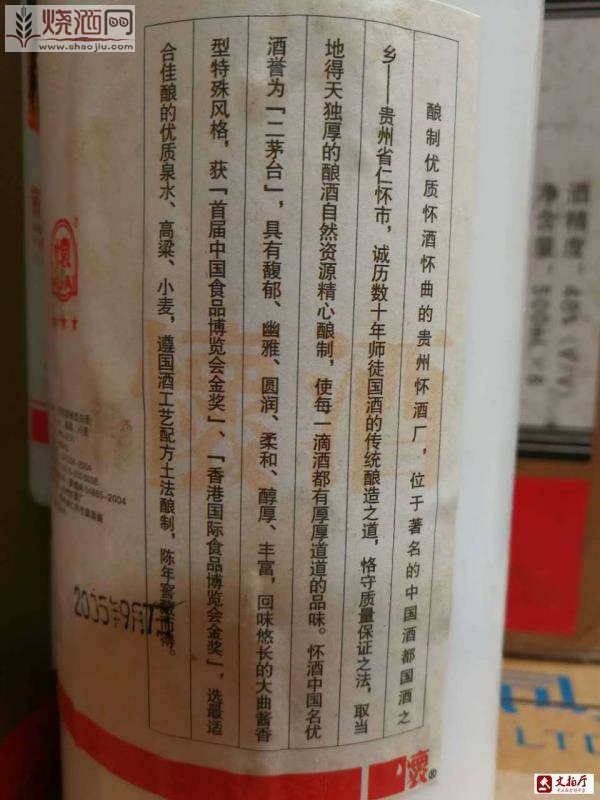 烧酒网
www.shaojiu.com
酿制优质怀酒怀曲的贵州怀酒厂，位于著名的中国酒都国酒之
乡——贵州省仁怀市，诚历数十年师徒国酒的传统酿造之道，恪守质量保证之法，取当
地得天独厚的酿酒自然资源精心酿制，使每一滴酒都有厚厚道道的品味。怀酒中国名优
酒誉为「二茅台」，具有馥郁、幽雅、圆润、柔和、醇厚、丰富，回味悠长的大曲酱香
型特殊风格，获「首届中国食品博览会金奖」、「香港国际食品博览会金奖」，选最适
合佳酿的优质泉水、高粱、小麦，遵国酒工艺配方土法酿制，陈年窖藏而得。
懷酒
懷®
懷
04885-2004
酒精度：
净含量：500mL×6
LTD
文拍厅